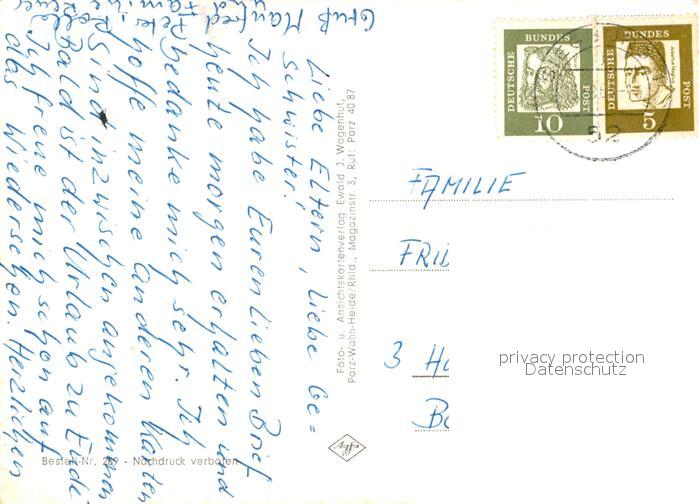 Liebe Eltern, liebe Ge=
schwister!
Ich habe Euren lieben Brief
heute morgen erhalten und
bedanke mich sehr. Ich
hoffe meine anderen Karten
sind inzwischen angekommen
Bald ist der Urlaub zu Ende
Ich freue mich schon auf
das Wiedersehen. Herzlichen
Gruß Manfred
und
Foto- u. Ansichtskartenverlag Ewald J. Wagenhut,
Porz-Wahn-Heide/Rhld., Magazinstr. 3, Ruf: Porz 40 87
Agfa
Bestell-Nr. 269 - Nachdruck verboten
DEUTSCHE BUNDES POST
10
DEUTSCHE BUNDES POST
5
52
FAMILIE
FRI
3 H
B
privacy protection
Datenschutz